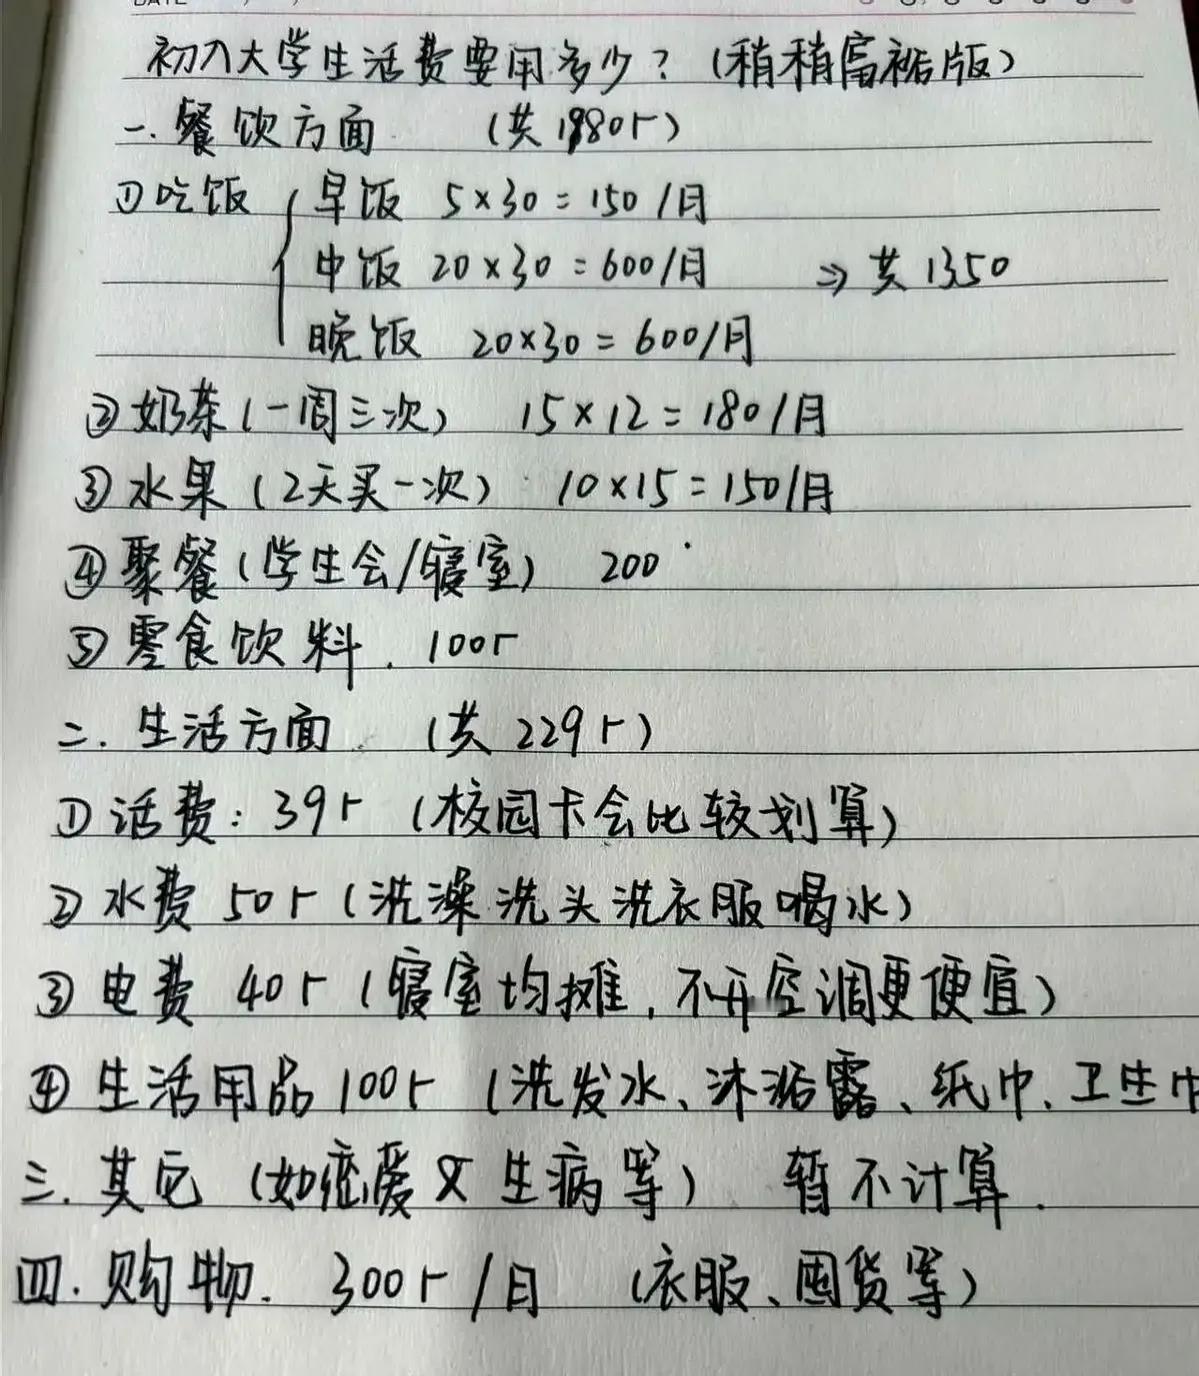 初入大学生活费要用多少？（稍稍富裕版）
一. 餐饮方面 （共1980r）
①吃饭 { 早饭 5×30=150/月
中饭 20×30=600/月 ⇒ 共1350
晚饭 20×30=600/月
②奶茶（一周三次） 15×12=180/月
③水果（2天买一次） 10×15=150/月
④聚餐（学生会/寝室） 200
⑤零食饮料. 100r
二. 生活方面 （共 229r）
①话费：39r （校园卡会比较划算）
②水费 50r（洗澡洗头洗衣服喝水）
③电费 40r（寝室均摊，不开空调更便宜）
④生活用品100r （洗发水、沐浴露、纸巾、卫生巾
三. 其它 （如恋爱又生病等） 暂不计算.
四. 购物. 300r/月 （衣服、囤货等）